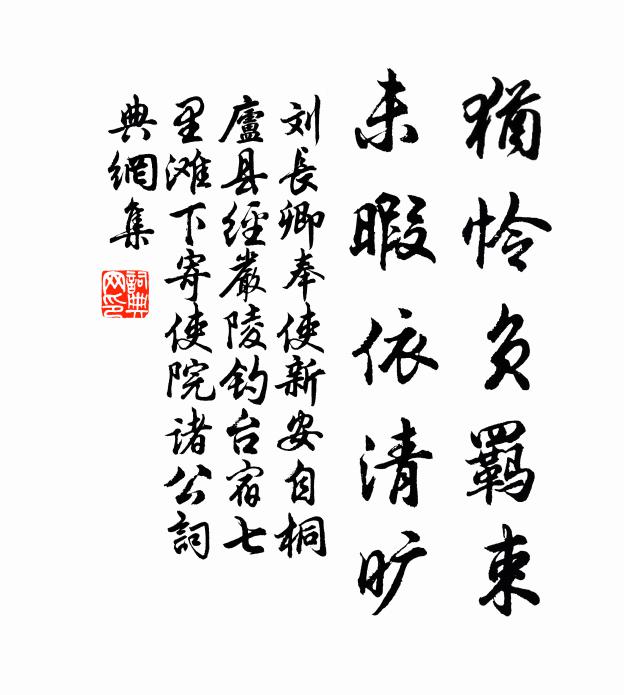 猶怜负羁束
未暇依清旷
刘長卿奉使新安自桐
廬县經嚴陵钓台宿七
里滩下寄使院诸公詞
典網集
詞典网印